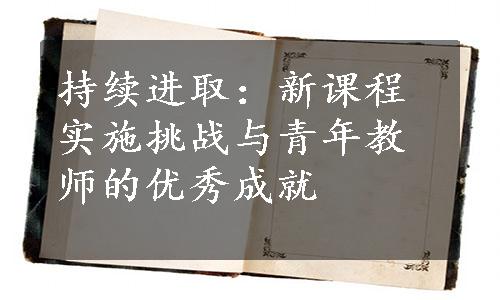 持续进取：新课程
实施挑战与青年教
师的优秀成就